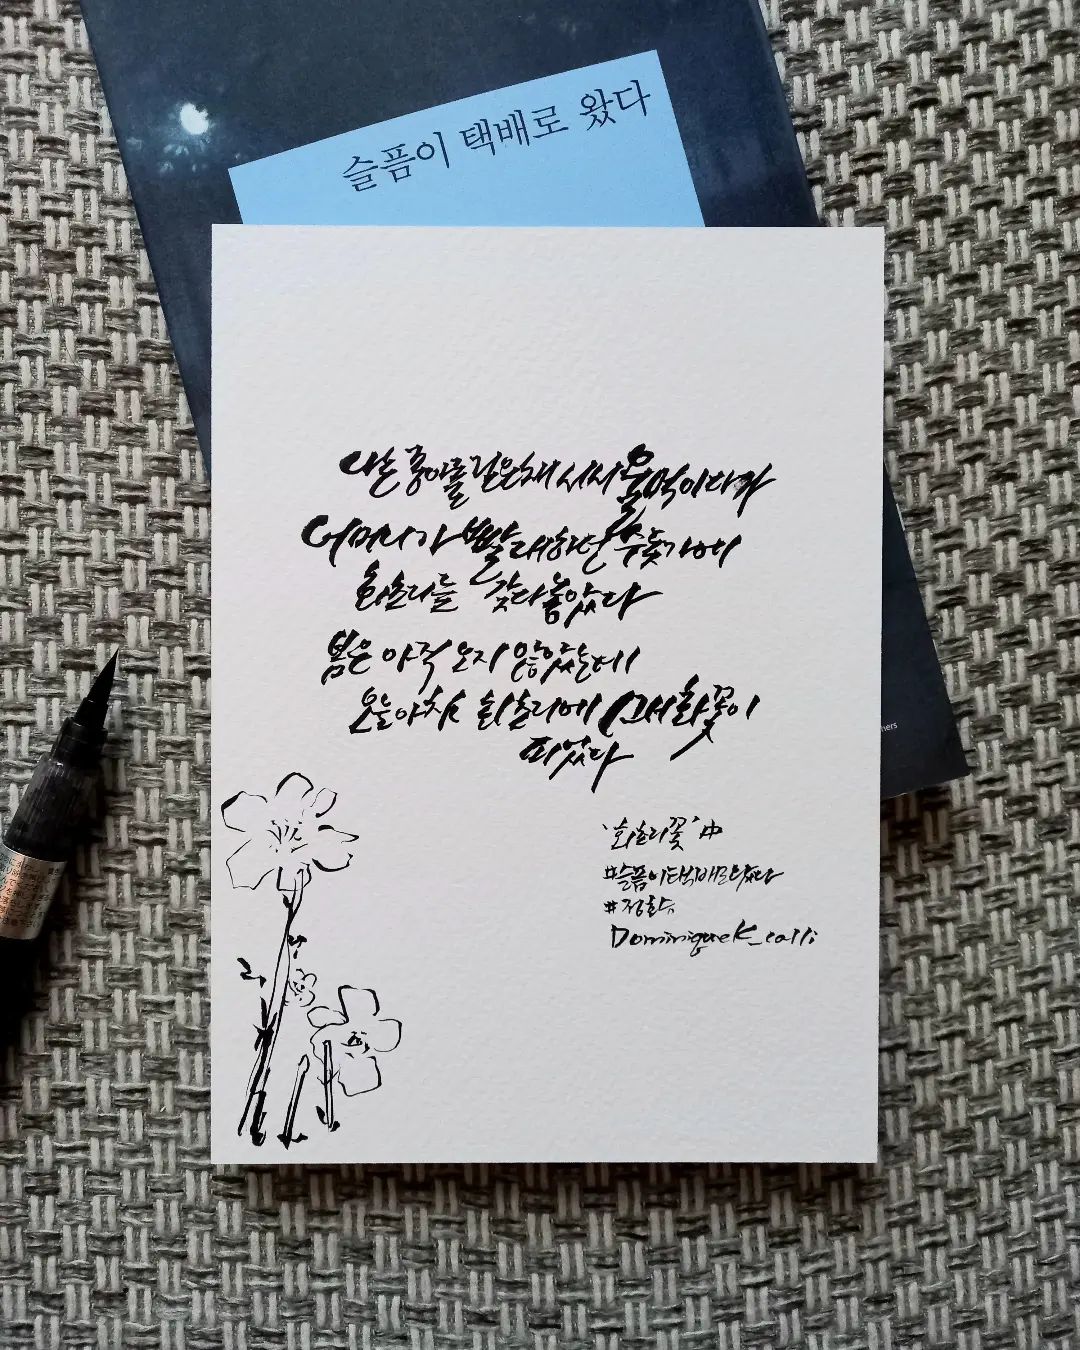 슬픔이 택배로 왔다
나는 걷은채 서서 울먹이다가
어머니가 빨래하던 수돗가에
회초리를 갖다놓았다
봄은 아직 오지 않았는데
오늘아침 회초리에 매화꽃이
피었다
'회초리꽃' 中
#슬픔이택배로왔다
#정호승
DominiqueK_calli